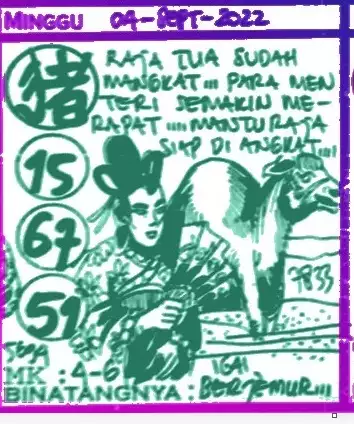 MINGGU 04-SEPT-2022
猪
RAJA TUA SUDAH
MANGKAT... PARA MEN
TERI SEMAKIN ME-
RAPAT.... MANTU RAJA
SIAP DI ANGKAT....
15
67
59
7833
MK : 4-6
BINATANGNYA : BERJEMUR...